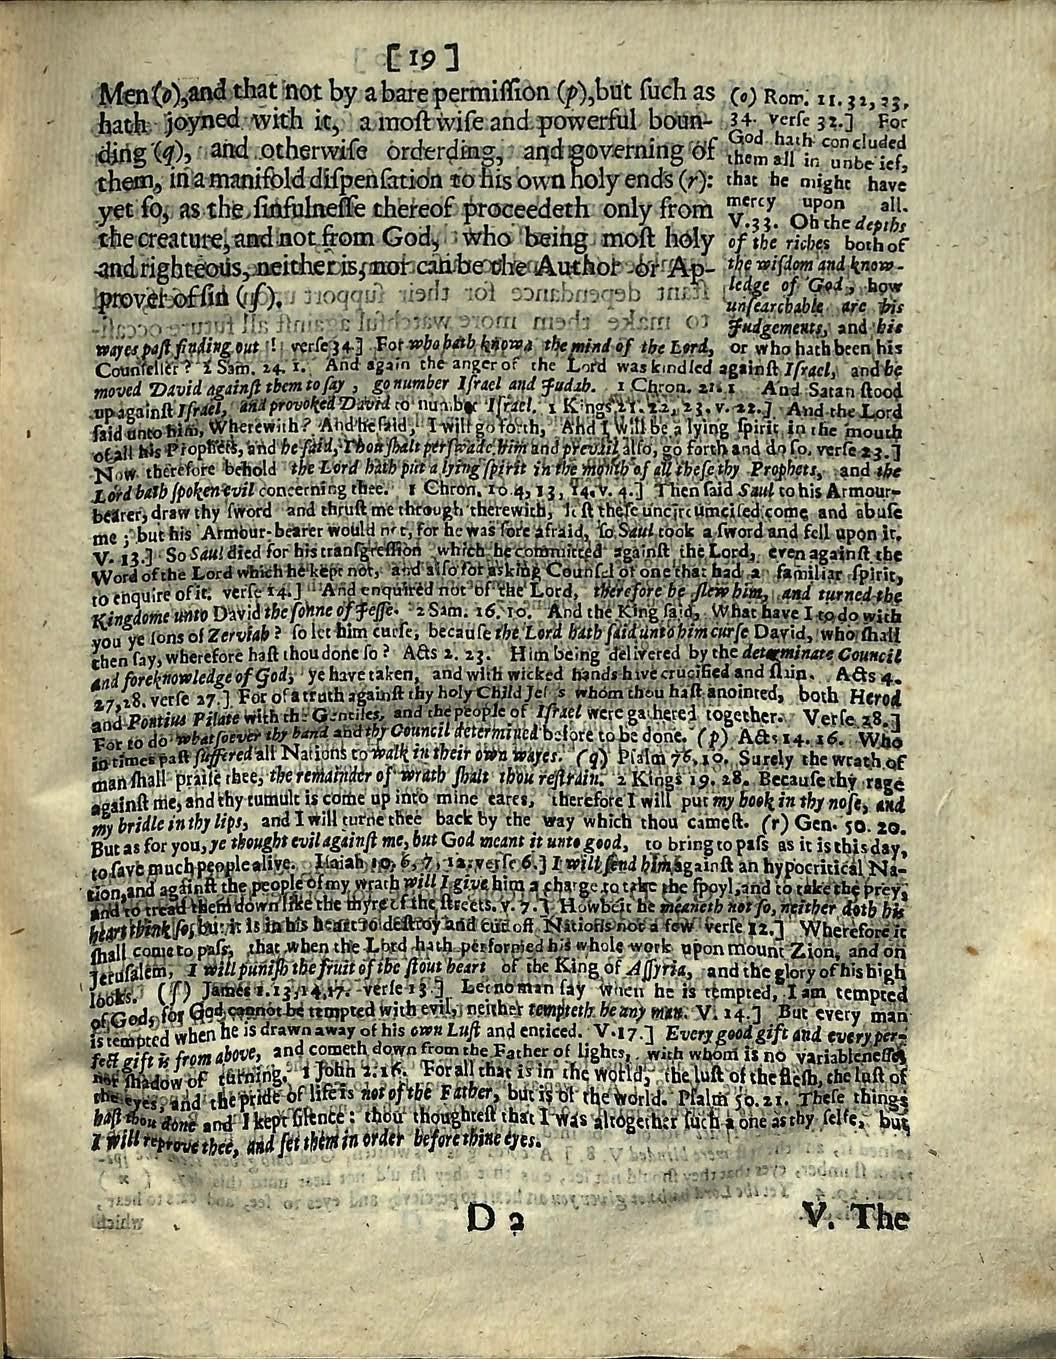 [ 19 ]
Men (o), and that not by a bare permiſſion (p), but ſuch as
hath joyned with it, a moſt wiſe and powerful boun-
ding (q), and otherwiſe orderding, and governing of
them, in a manifold diſpenſation to his own holy ends (r):
yet ſo, as the ſinfulneſſe thereof proceedeth only from
the creature, and not from God, who being moſt holy
and righteous, neither is, nor can be the Author or Ap-
prover of ſin (ſ).
(o) Rom. 11. 32, 33,
34. verſe 32.] For
God hath concluded
them all in unbelief,
that he might have
mercy upon all.
V.33. Oh the depths
of the riches both of
the wiſdom and know-
ledge of God, how
unſearchable are his
Judgements, and his
wayes paſt finding out ! verſe 34.] For who hath known the mind of the Lord, or who hath been his
Counſeller ? 2 Sam. 24. 1. And again the anger of the Lord was kindled againſt Iſrael, and he
moved David againſt them to ſay, go number Iſrael and Judah. 1 Chron. 21. 1 And Satan ſtood
up againſt Iſrael, and provoked David to number Iſrael. 1 Kings 21. 22, 23. v. 22.] And the Lord
ſaid unto him, Wherewith ? And he ſaid, I will go forth, And I will be a lying ſpirit in the mouth
of all his Prophets, and he ſaid, Thou ſhalt perſwade him and prevail alſo, go forth and do ſo. verſe 23.]
Now therefore behold the Lord hath put a lying ſpirit in the mouth of all theſe thy Prophets, and the
Lord hath ſpoken evil concerning thee. 1 Chron. 10 4, 13, 14. v. 4.] Then ſaid Saul to his Armour-
bearer, draw thy ſword and thruſt me through therewith, leſt theſe uncircumciſed come and abuſe
me ; but his Armour-bearer would not, for he was ſore afraid, ſo Saul took a ſword and fell upon it.
V. 13.] So Saul died for his tranſgreſſion which he committed againſt the Lord, even againſt the
Word of the Lord which he kept not, and alſo for asking Counſel of one that had a familiar ſpirit,
to enquire of it. verſe 14.] And enquired not of the Lord, therefore he ſlew him, and turned the
Kingdome unto David the ſonne of Jeſſe. 2 Sam. 16. 10. And the King ſaid, What have I to do with
you ye ſons of Zerviah ? ſo let him curſe, becauſe the Lord hath ſaid unto him curſe David, who ſhall
then ſay, wherefore haſt thou done ſo ? Acts 2. 23. Him being delivered by the determinate Council
and foreknowledge of God, ye have taken, and with wicked hands have crucified and ſlain. Acts 4.
27, 28. verſe 27.] For of a truth againſt thy holy Child Jeſus whom thou haſt anointed, both Herod
and Pontius Pilate with the Gentiles, and the people of Iſrael were gathered together. Verſe 28.]
For to do whatſoever thy hand and thy Council determined before to be done. (p) Acts 14. 16. Who
in times paſt ſuffered all Nations to walk in their own wayes. (q) Pſalm 76. 10. Surely the wrath of
man ſhall praiſe thee, the remainder of wrath ſhalt thou reſtrain. 2 Kings 19. 28. Becauſe thy rage
againſt me, and thy tumult is come up into mine eares, therefore I will put my hook in thy noſe, and
my bridle in thy lips, and I will turne thee back by the way which thou cameſt. (r) Gen. 50. 20.
But as for you, ye thought evil againſt me, but God meant it unto good, to bring to paſs as it is this day,
to ſave much people alive. Iſaiah 10, 6, 7, 12. verſe 6.] I will ſend him againſt an hypocritical Na-
tion, and againſt the people of my wrath will I give him a charge to take the ſpoyl, and to take the prey,
and to tread them down like the myre of the ſtreets. v. 7.] Howbeit he meaneth not ſo, neither doth his
heart think ſo, but it is in his heart to deſtroy and cut off Nations not a few verſe 12.] Wherefore it
ſhall come to paſs, that when the Lord hath performed his whole work upon mount Zion, and on
Jeruſalem, I will puniſh the fruit of the ſtout heart of the King of Aſſyria, and the glory of his high
looks. (ſ) James 1. 13, 14, 17. verſe 13.] Let no man ſay when he is tempted, I am tempted
of God, for God cannot be tempted with evil, neither tempteth he any man. V. 14.] But every man
is tempted when he is drawn away of his own Luſt and enticed. V. 17.] Every good gift and every per-
fect gift is from above, and cometh down from the Father of lights, with whom is no variableneſſe
nor ſhadow of turning. 1 John 2. 16. For all that is in the world, the luſt of the fleſh, the luſt of
the eyes, and the pride of life is not of the Father, but is of the world. Pſalm 50. 21. Theſe things
haſt thou done and I kept ſilence : thou thoughteſt that I was altogether ſuch a one as thy ſelfe, but
I will reprove thee, and ſet them in order before thine eyes.
D 2
V. The